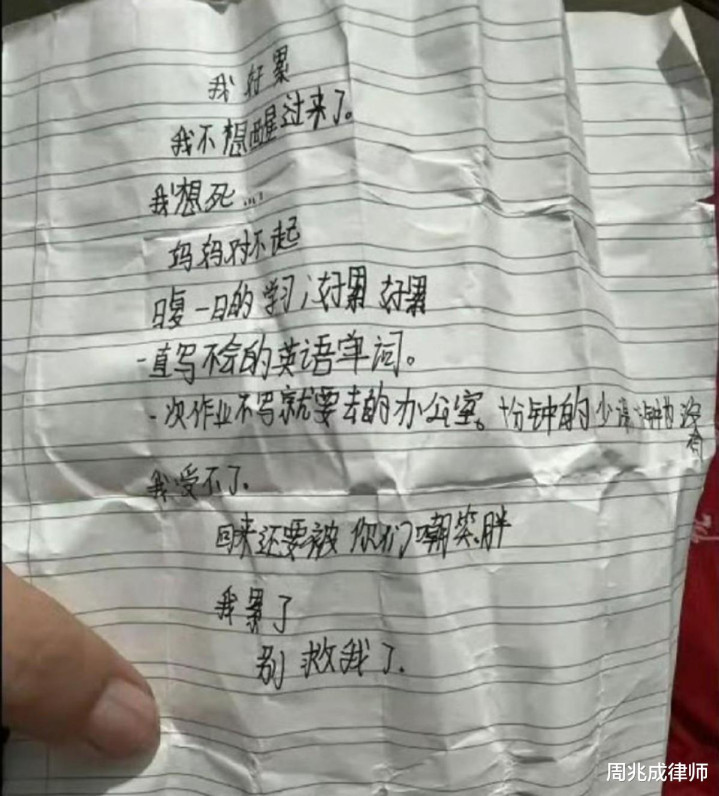 我好累
我不想醒过来了。
我想死...
妈妈对不起
日复一日的学习,好累 好累
一直写不会的英语单词。
一次作业不写就要去的办公室。十分钟的少课 钟的没有
我受不了.
回来还要被你们嘲笑胖
我累了
别救我了.
周兆成律师